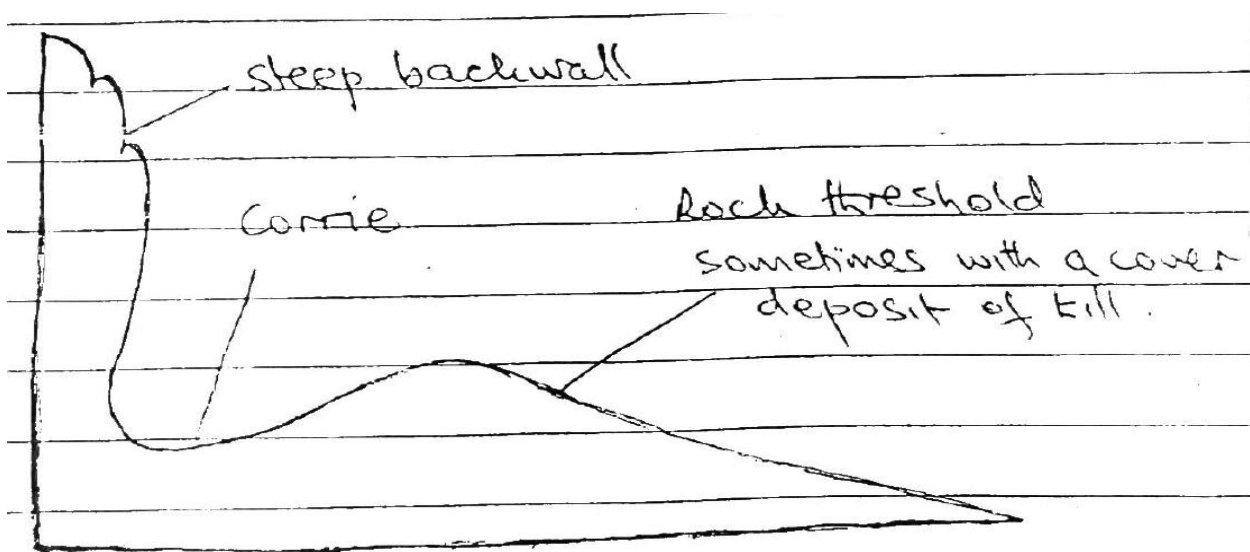 steep backwall
Corrie
Rock threshold
sometimes with a cover
deposit of till.